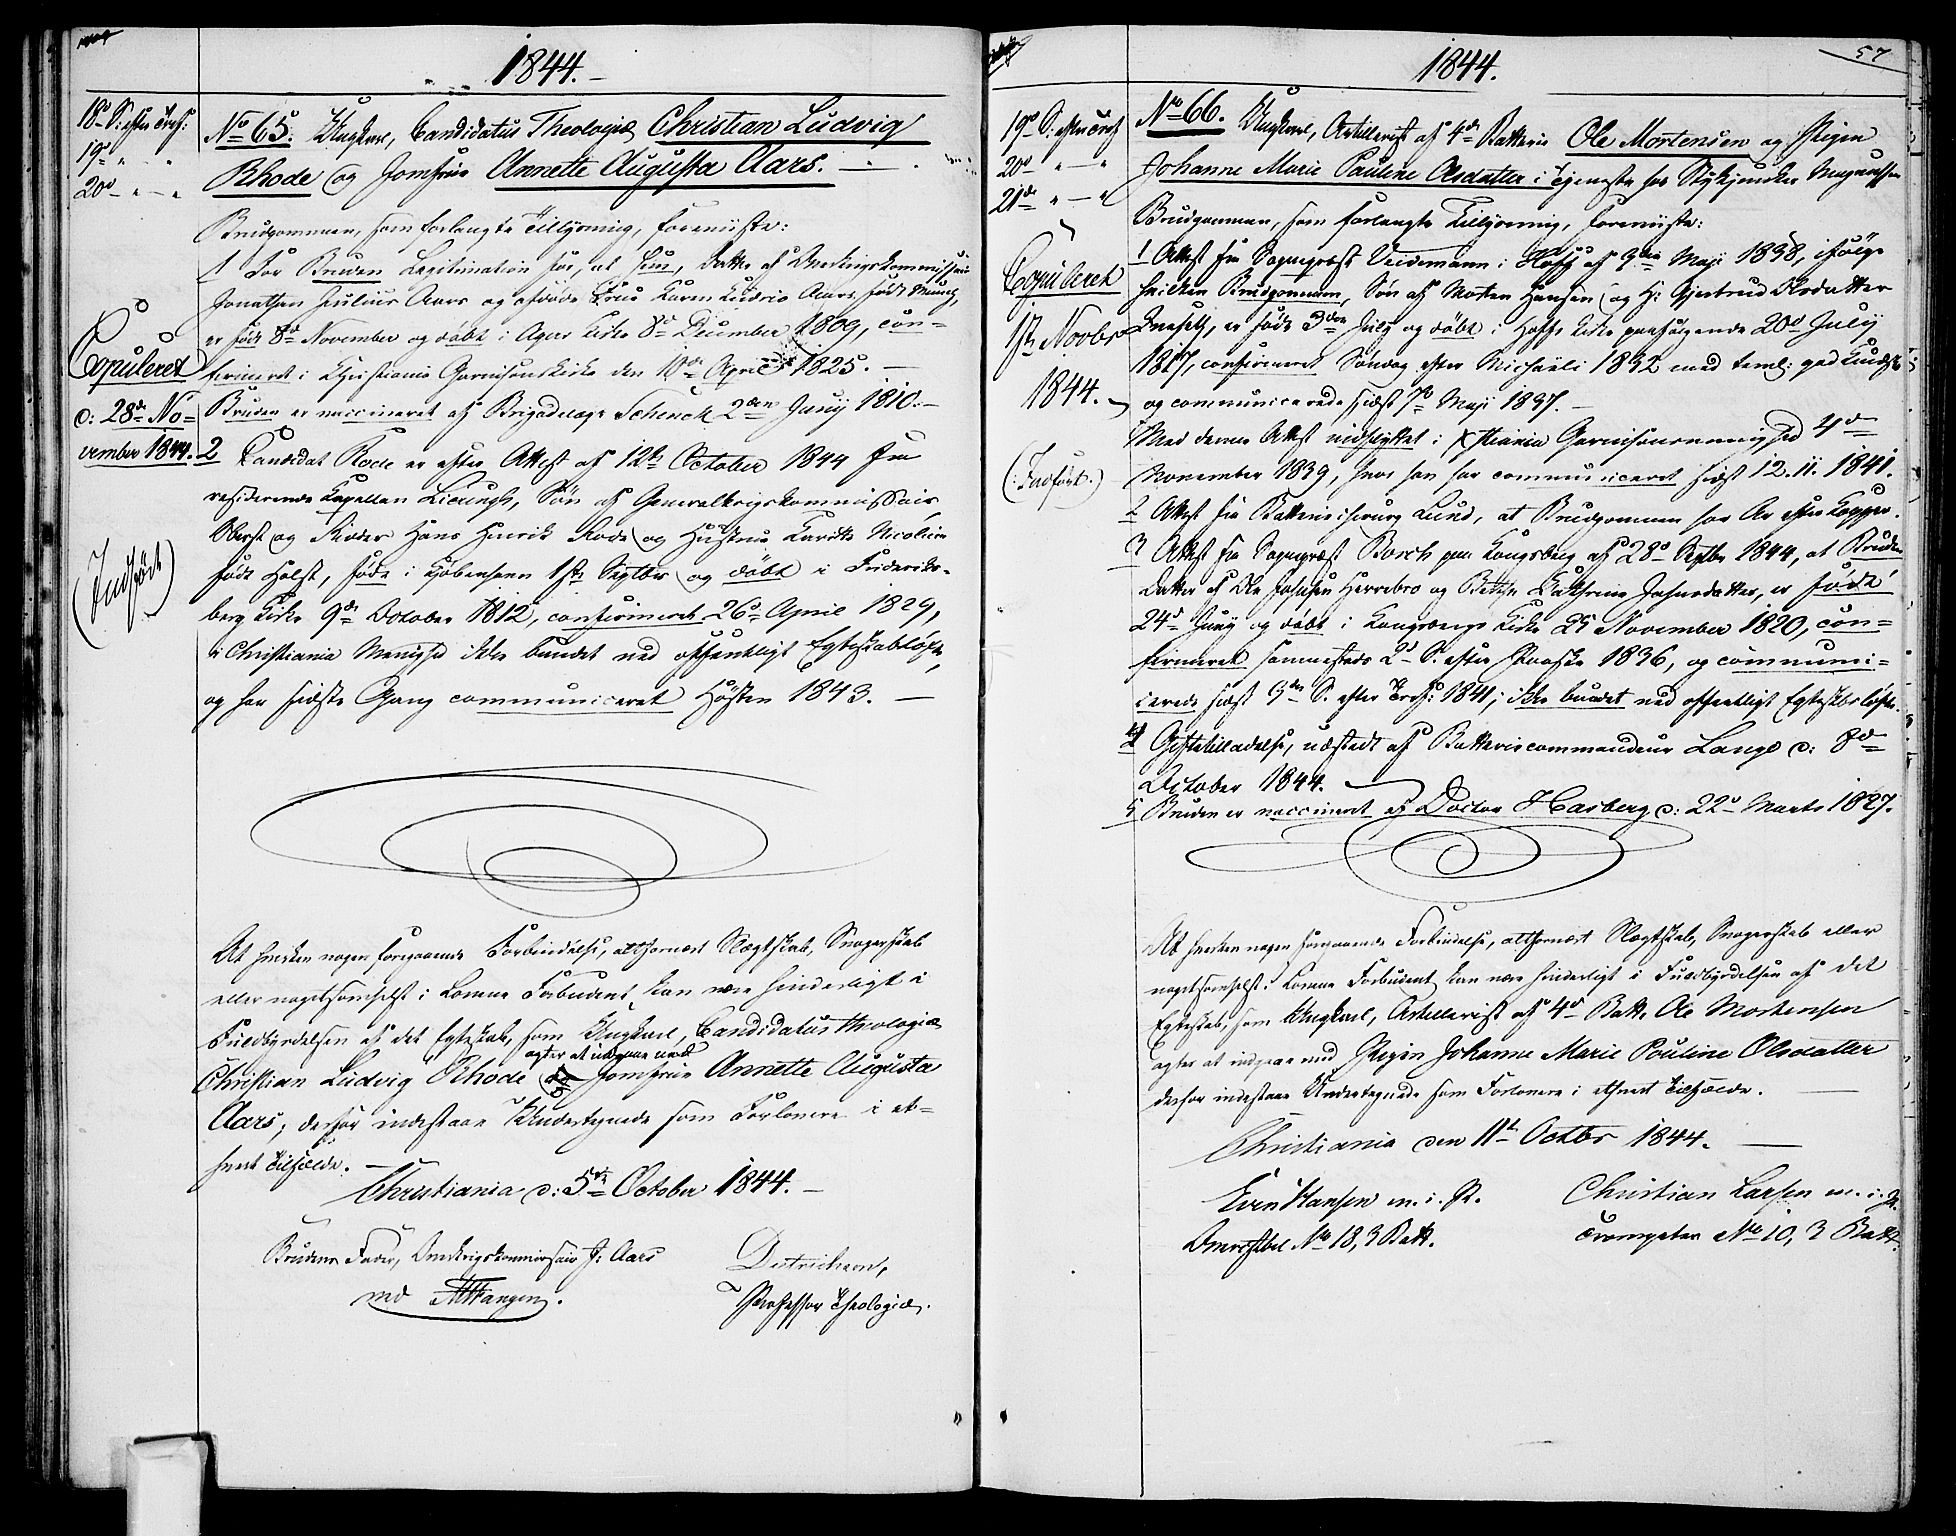 1844.
18d S. efter Tref:
19d " "
20d " — "
No 65. Ungkarl, Candidatus Theologiæ Christian Ludvig
Rhode og Jomfrue Annette Augusta Aars.
Brudgommen, som forlangte Tillysning, foreviiste:
1 For Bruden Legitimation for, at hun, Datter af Overkrigskommissair
Jonathan Julius Aars og afdøde Frue Karen Ludvia Aars, født Munch,
er født 8de November og døbt i Agers Kirke 8de December 1809, con-
firmeret i Christiania Garnisonskirke den 10de April 1825. —
Bruden er vaccineret af Brigadelæge Schenck 2den Juny 1810. —
2 Candidat Rode er efter Attest af 12te October 1844 fra
residerende Kapellan Lieungh, Søn af Generalkrigskommissair
Oberst og Ridder Hans Henrik Rode og Hustrue Karitte Nicoline
født Holst, føde i Kjøbenhavn 1ste Septbr og døbt i Frideriks-
berg Kirke 9de October 1812, confirmeret 26d April 1829,
i Christiania Menighed ikke bundet ved offentligt Egteskabsløfte,
og har sidste Gang communiceret Høsten 1843. —
Copuleret
d: 28de No-
vember 1844.
(Indført)
At hverken nogen foregaaende Forbindelse, altfornært Slægtskab, Svogerskab
eller nogetsomhelst i Lovene Forbudent kan være hinderligt i
Fuldbyrdelsen af det Egteskab, som Ungkarl, Candidatus theologiæ
agter at indgaae med
Christian Ludvig Rhode Jomfrue Annette Augusta
Aars, derfor indestaae Undertegnede som Forlovere i et-
hvert Tilfælde. —
Christiania d: 5te October 1844. —
Brudens Fader, Overkrigskommissair J: Aars
Dietrichson,
Professor Theologiæ.
1844.
57
19d S. efter Tref
20d " — "
21de " — "
Copuleret
1ste Novbr
1844.
(Indført.)
No 66. Ungkarl, Artillerist af 4de Batterie Ole Mortensen og Pigen
Johanne Marie Pauline Olsdatter i Tjeneste hos Stykjunker Magnussen
Brudgommen, som forlangte Tillysning, foreviiste:
1 Attest fra Sognepræst Veidemann i Hoff af 9de Maji 1838, ifølge
hvilken Brudgommen, Søn af Morten Hansen og H: Gjertrud Olsdatter
er føde 3den July og døbt i Hoffs Kirke paafølgende 20d July
1817, confirmeret Søndag efter Michaëli 1832 med teml: god Kundsk
og communicerede sidst 7de Maji 1837. —
Med denne Attest indflyttet i Xstiania Garnisonsmenighed 4de
November 1839, hvor han har communiceret sidst 12.11.1841.
2 Attest fra Batteriechirurg Lund, at Brudgommen har Ar efter Kopper.
3 Attest fra Sognepræst Borch paa Kongsberg af 28d Septbr 1844, at Bruden
Datter af Ole Johnsen Herrebro og Kathrine Johnsdatter, er født
24d Juny og døbt i Kongsbergs Kirke 25 November 1820, con-
firmeret sammesteds 2d S. efter Paaske 1836, og communi-
cerede sidst 9de S. efter Tref: 1841; ikke bundet ved offentligt Egteskbsløfte.
4 Giftetilladelse, udstedt af Batteriecommandeur Lange d: 8de
October 1844.
5 Bruden er vaccineret af Doctor Hasberg d: 22d Marts 1827.
At hverken nogen foregaaende Forbindelse, altfornært Slægtskab, Svogerskab eller
nogetsomhelst i Lovene Forbudent kan være hinderligt i Fuldbyrdelsen af det
Egteskab, som Ungkarl, Artillerist af 4d Batt. Ole Mortensen
agter at indgaae med Pigen Johanne Marie Pouline Olsdatter
derfor indestaae Undertegnede som Forlovere i ethvert Tilfælde. —
Christiania den 11te Octbr 1844. —
Even Hansen m. i. P.
Christian Larsen m. i. P.
No 18, 3 Batt.
Trompeter No 10, 3 Batt.